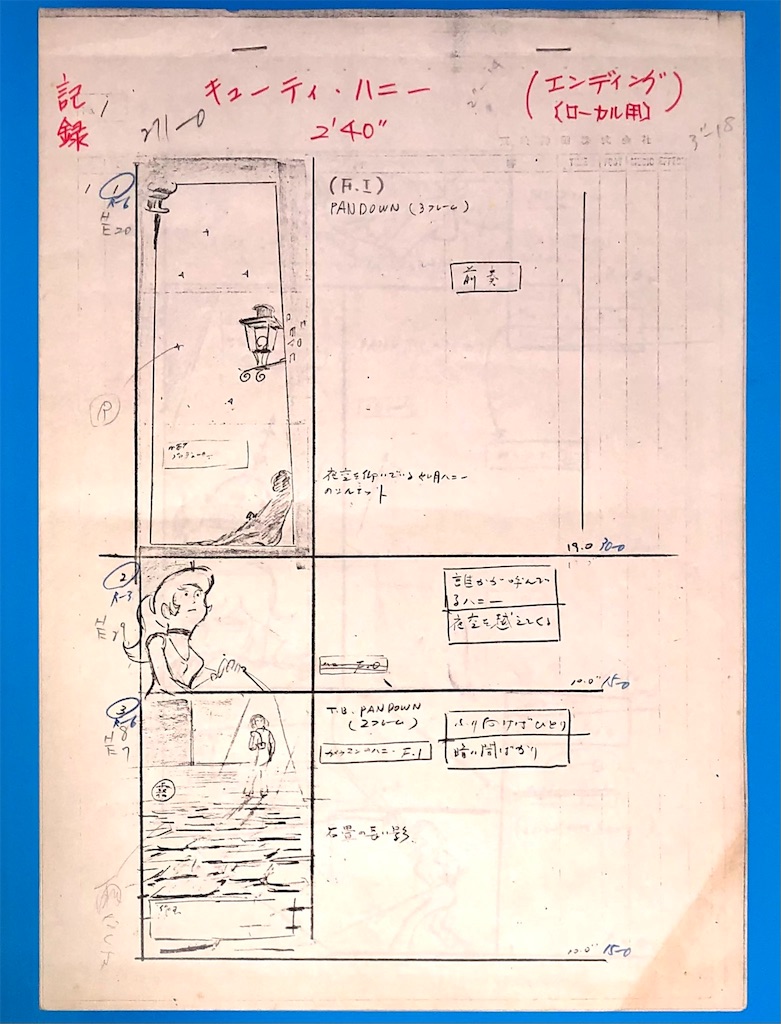 記録
キューティ・ハニー
2'40"
(エンディング)
(ローカル用)
3"-18
1
R-6
H
E 20
(F.I)
PANDOWN (3フレーム)
前奏
R
夜空を仰いでいる如月ハニー
のシルエット
19.0 30-0
2
R-3
H
E
誰かが呼んで
るハニー
夜空を越えてくる
10.0" 15-0
3
R-6
8
H
E 7
T.B. PANDOWN
(2フレーム)
F.I
ふり向けばひとり
暗い闇ばかり
石畳の長い影
10.0" 15-0